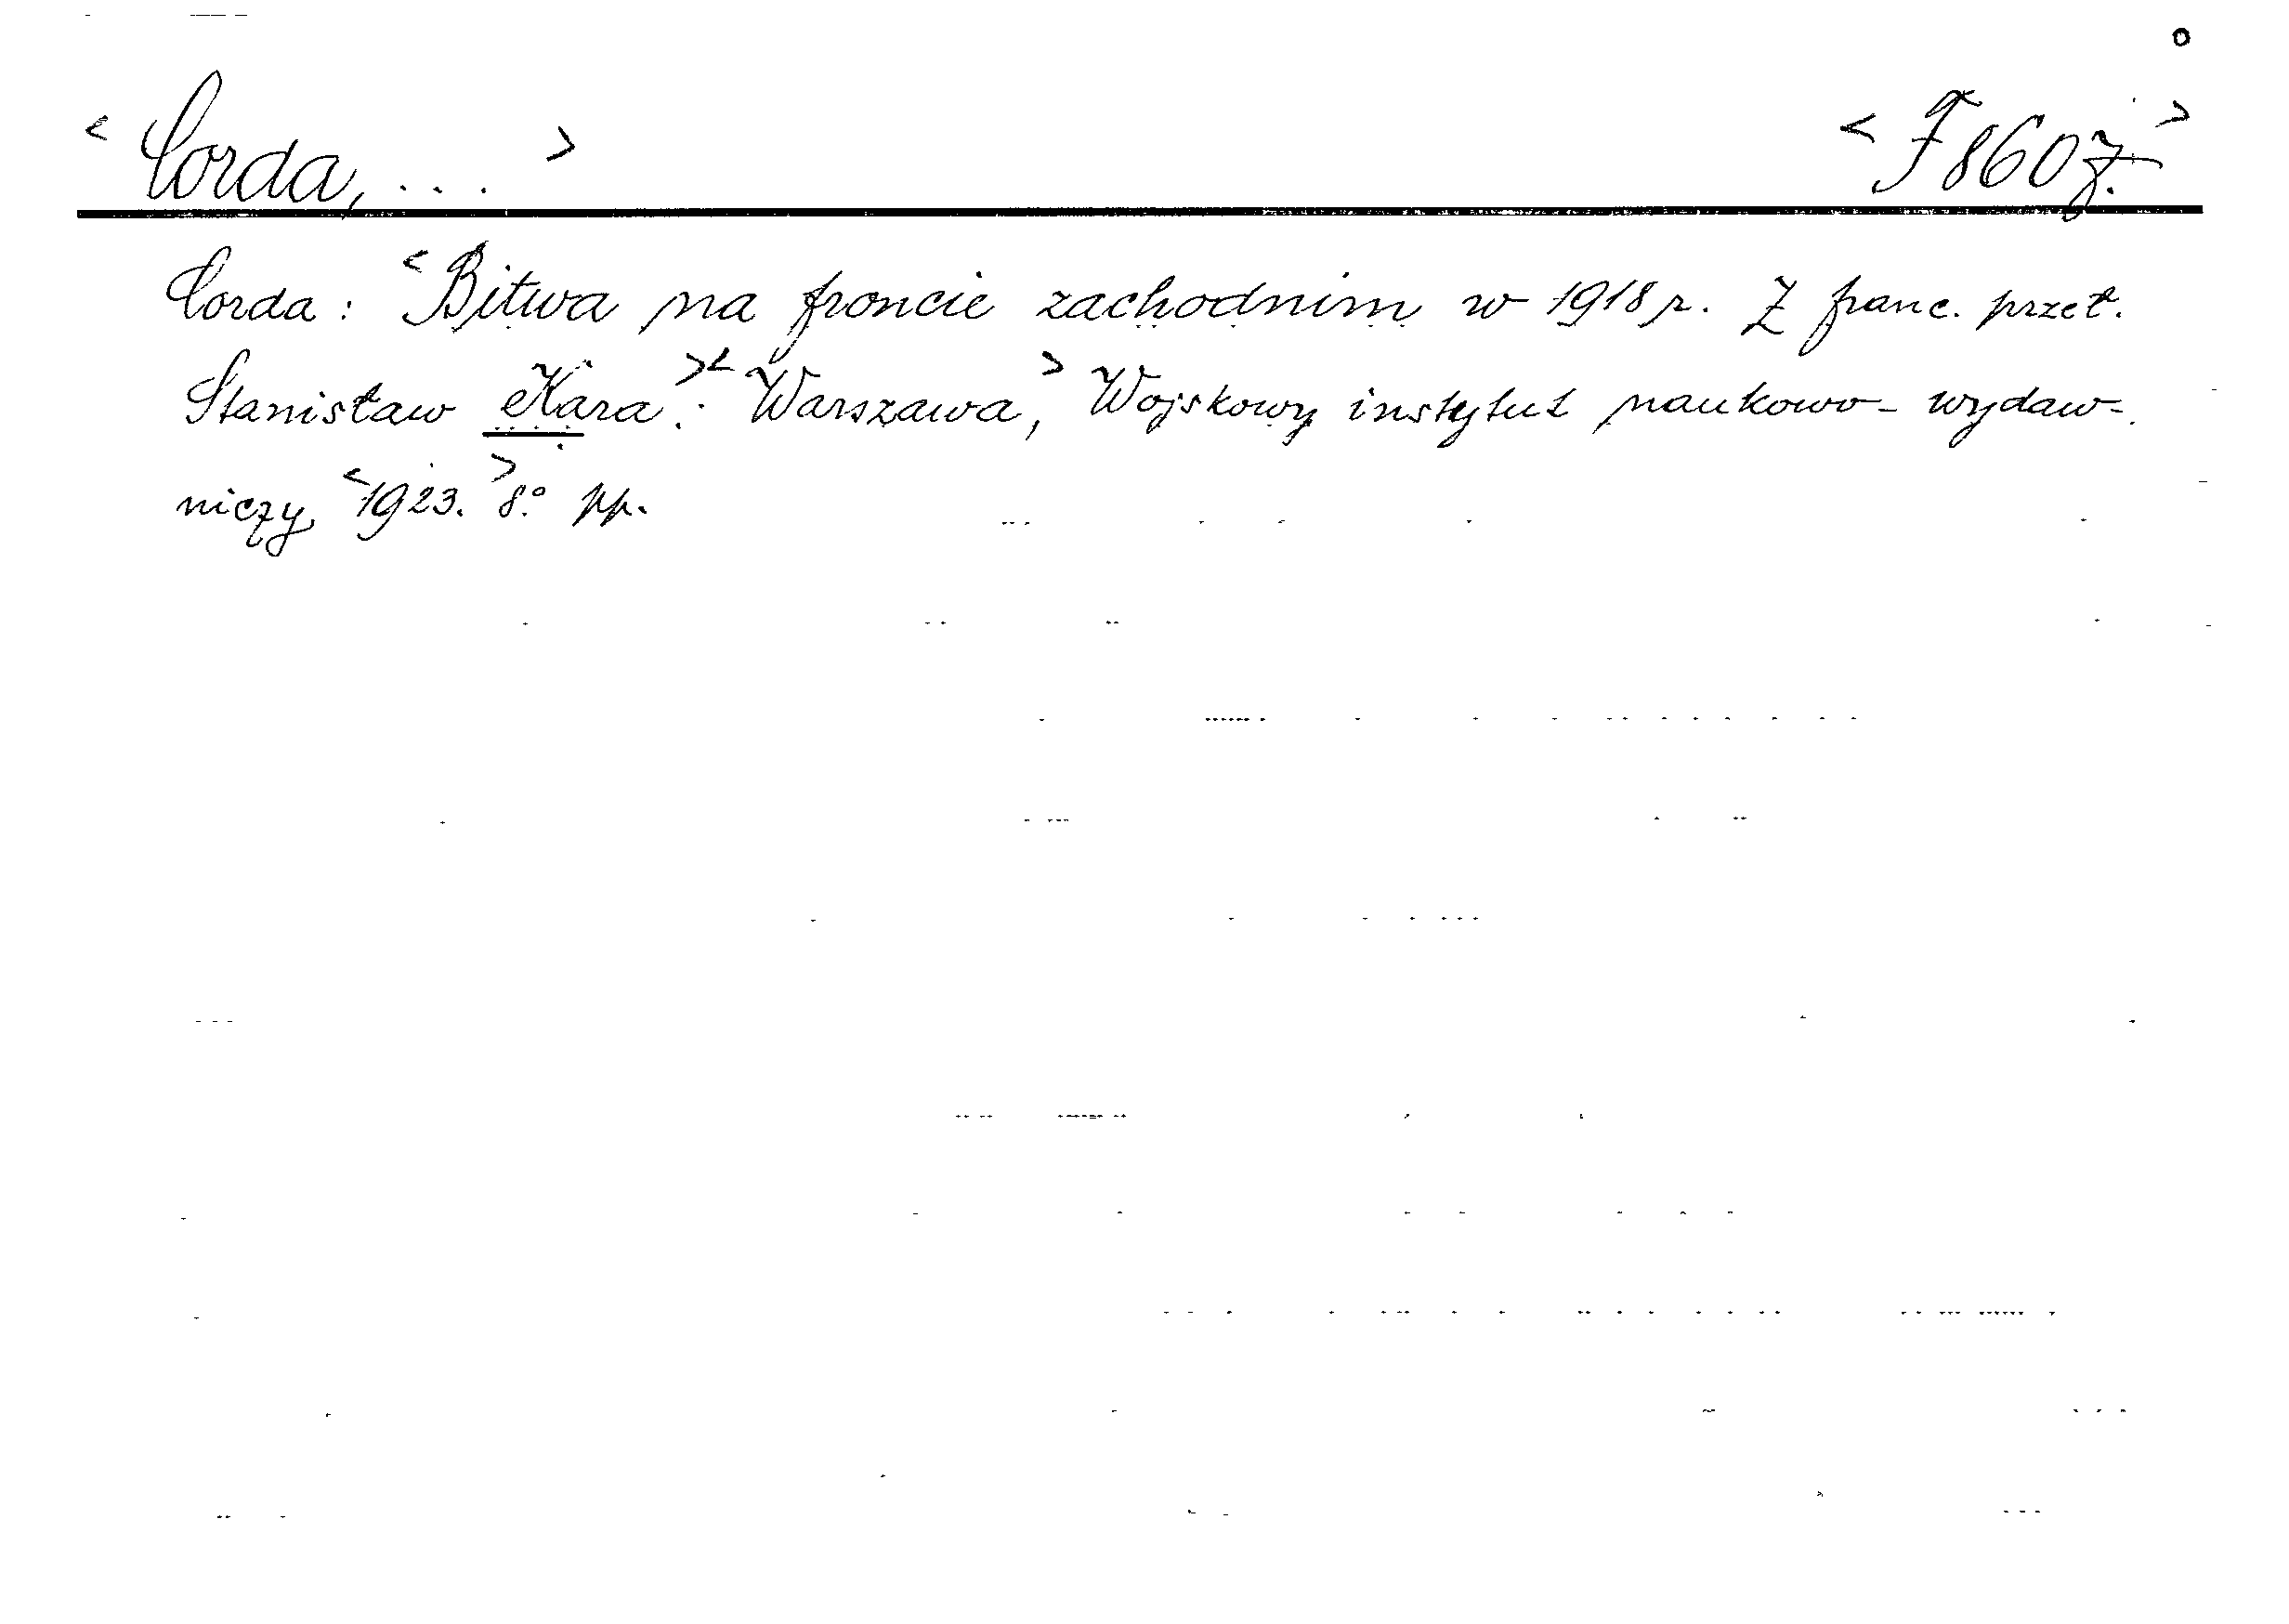 <Corda, . . .> <F 860 z.>
Corda: <Bitwa na froncie zachodnim w 1918 r. Z franc. przeł.
Stanisław Kara.> <Warszawa,> Wojskowy instytut naukowo-wydaw-
niczy, <1923.> 8.° pp.